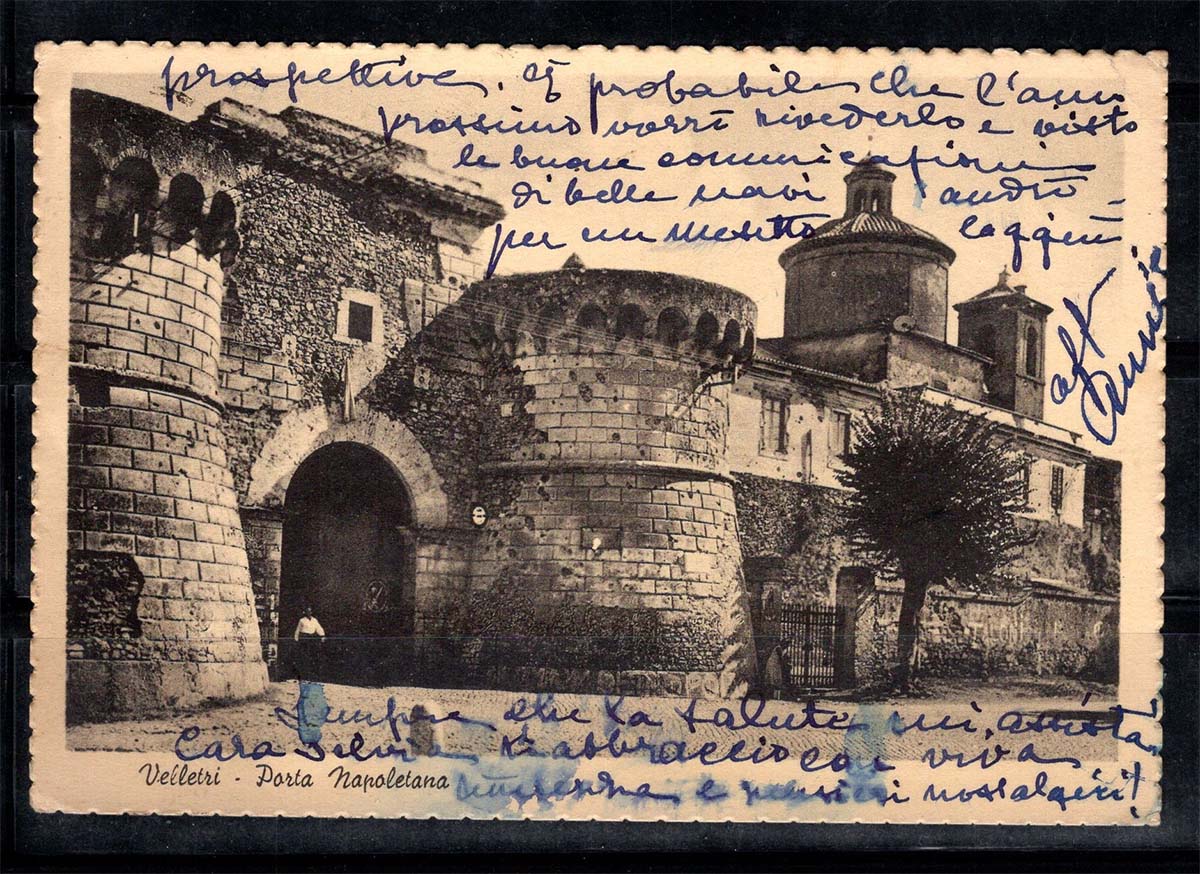 prospettive. E probabile che l'ann
prossimo vorrò rivederlo e visto
le buone comunicazioni
di belle navi andrò
per un mesetto laggiù
aff
Sempre che la salute mi assista
Cara Silvia t'abbraccio con viva
e pensieri nostalgici!
Velletri - Porta Napoletana